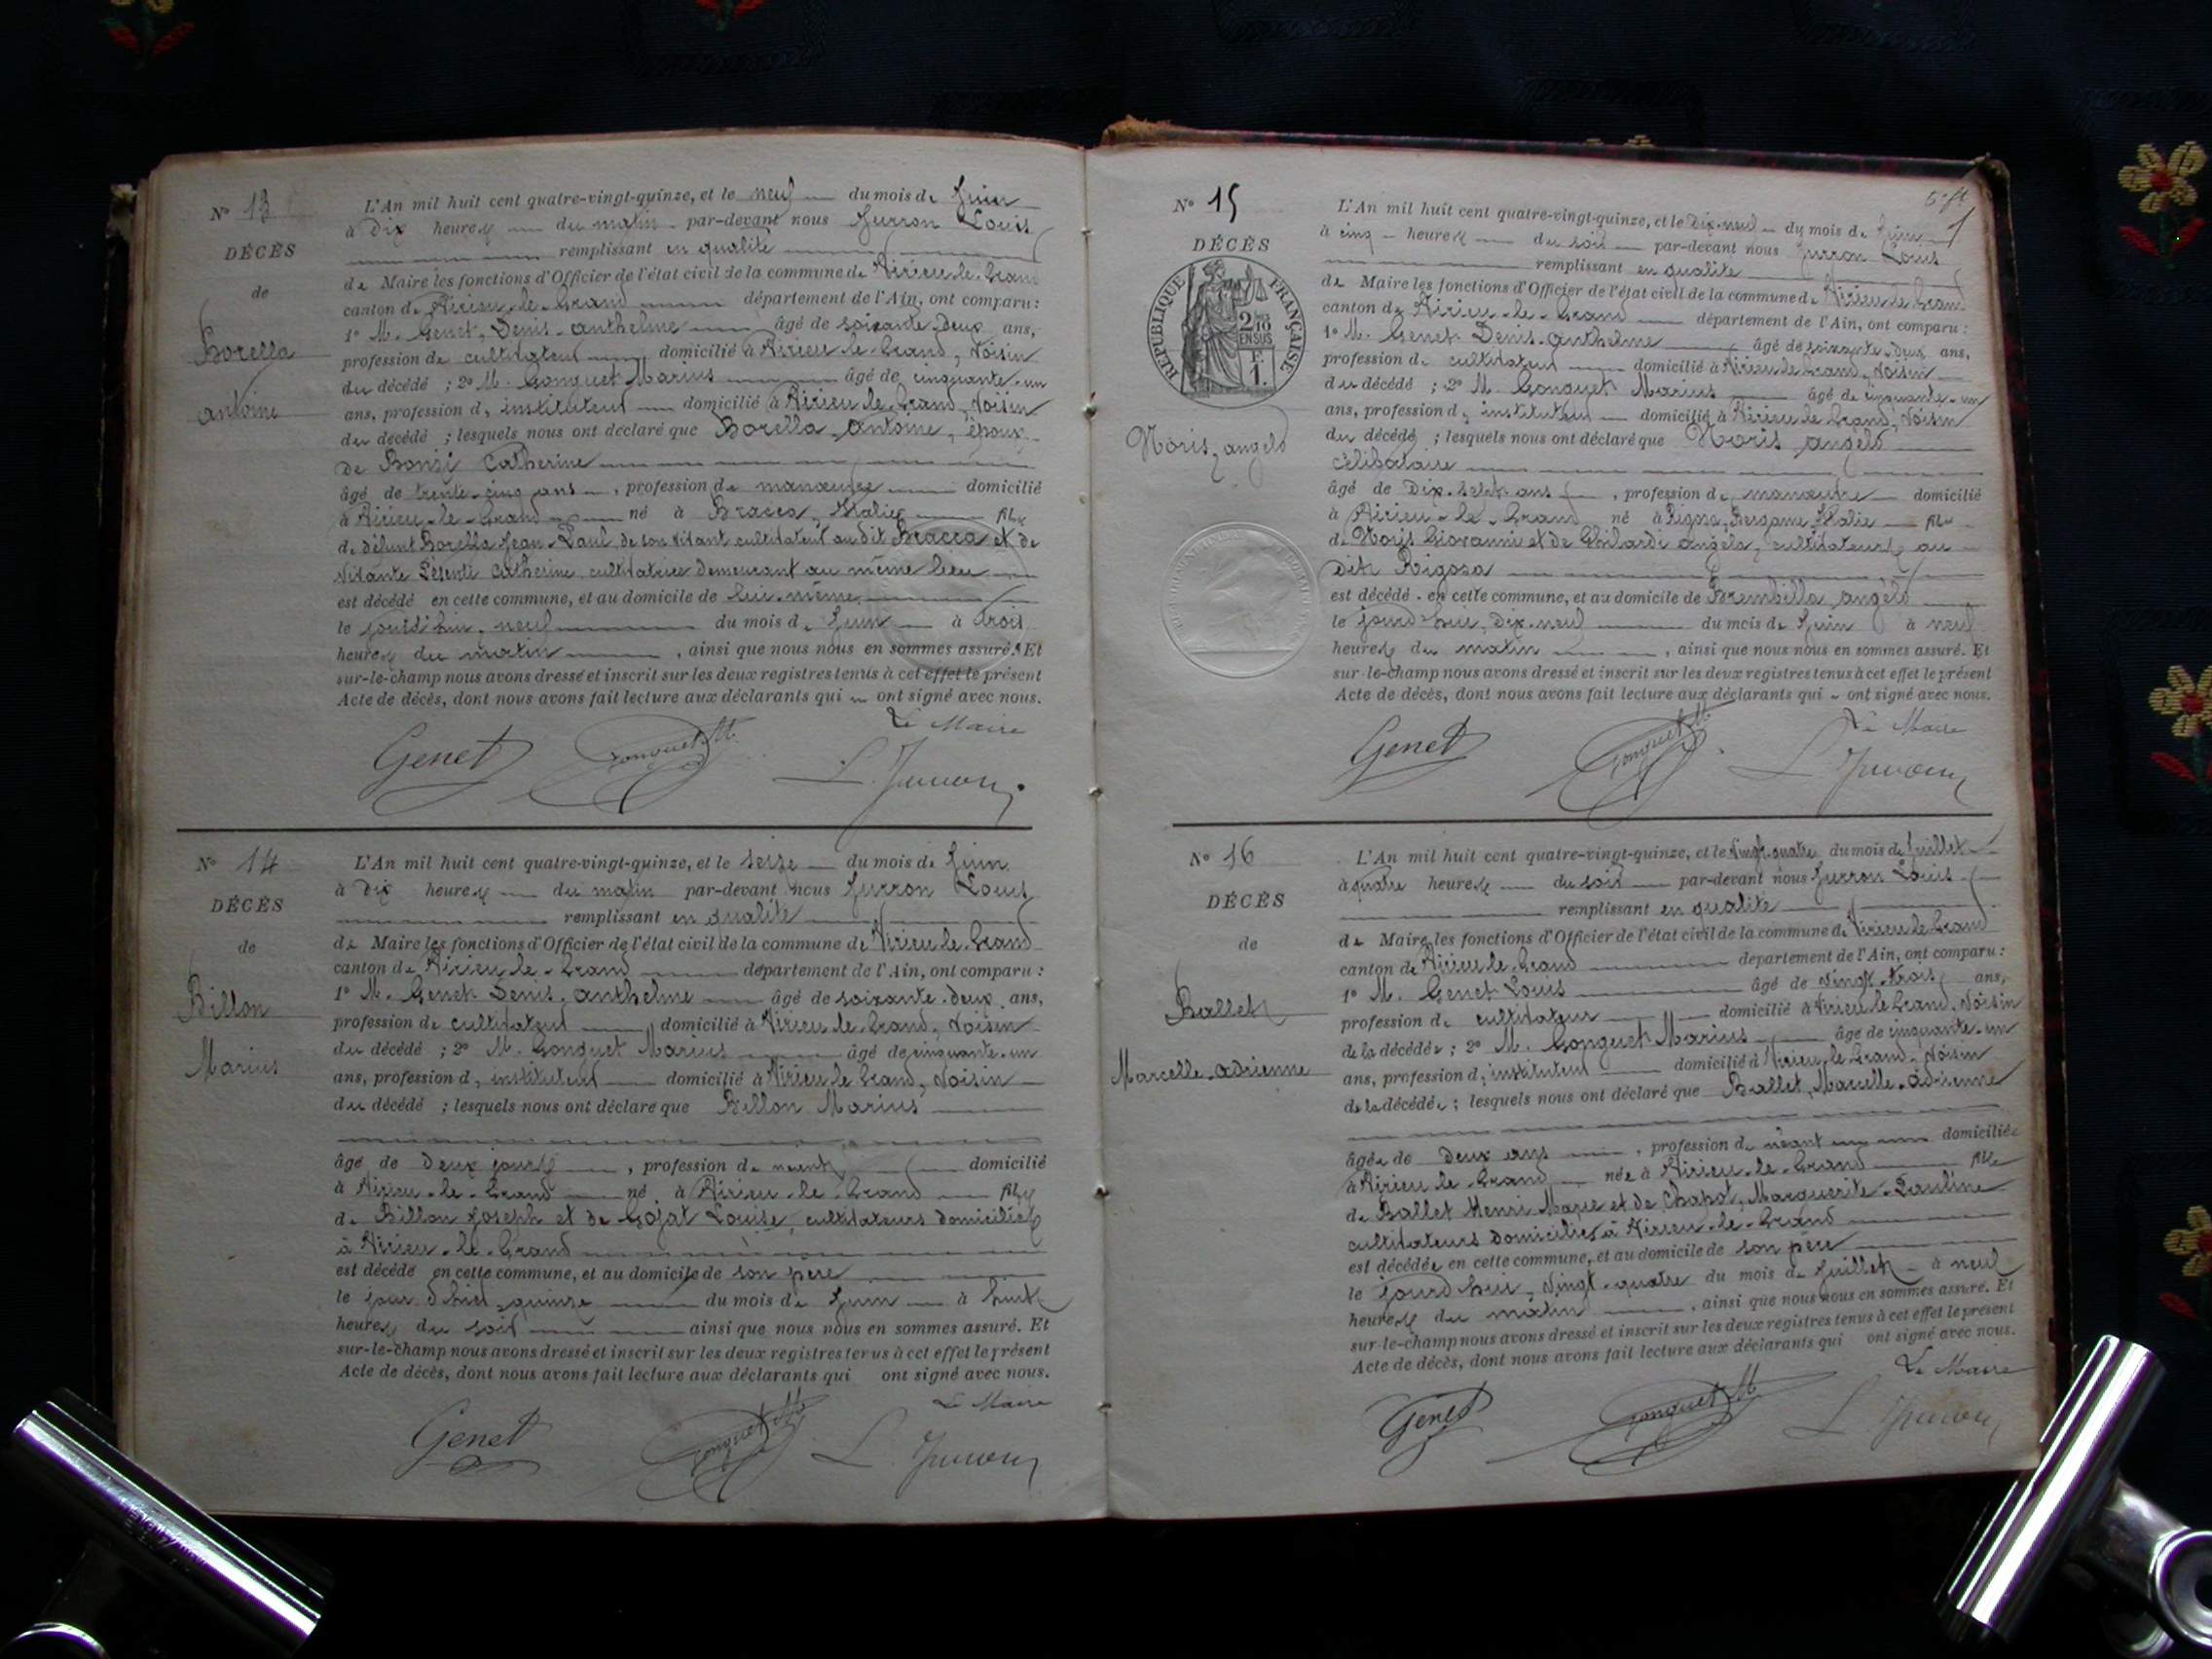 N° 13
DÉCÈS
de
Borella
antoine
L'An mil huit cent quatre-vingt-quinze, et le neuf du mois de Juin
à Dix heures du matin par-devant nous Jurron Louis
remplissant en qualité
de Maire les fonctions d'Officier de l'état civil de la commune de Virieu-le-Grand
canton de Virieu-le-Grand département de l'Ain, ont comparu :
1° M. Genet, Denis-anthelme âgé de soixante-deux ans,
profession de cultivateur domicilié à Virieu-le-Grand, Voisin
du décédé ; 2° M. Gonguet Marius âgé de cinquante-un
ans, profession d, instituteur domicilié à Virieu-le-Grand, Voisin
du décédé ; lesquels nous ont déclaré que Borella, antoine, époux
de Bonzi Catherine
âgé de trente-cinq ans, profession de manœuvre domicilié
à Virieu-le-Grand né à Bracca, Italie fils
de défunt Borella Jean-Paul, de son vivant cultivateur au dit Bracca et de
vivante Pesenti Catherine, cultivatrice demeurant au même lieu
est décédé en cette commune, et au domicile de lui-même
le jourd'hui, neuf du mois de Juin à trois
heures du matin, ainsi que nous nous en sommes assuré. Et
sur-le-champ nous avons dressé et inscrit sur les deux registres tenus à cet effet le présent
Acte de décès, dont nous avons fait lecture aux déclarants qui ont signé avec nous.
Le Maire
Genet Gonguet M. L. Jurron
N° 14
DÉCÈS
de
Billon
Marius
L'An mil huit cent quatre-vingt-quinze, et le seize du mois de Juin
à Dix heures du matin par-devant nous Jurron Louis
remplissant en qualité
de Maire les fonctions d'Officier de l'état civil de la commune de Virieu-le-Grand
canton de Virieu-le-Grand département de l'Ain, ont comparu :
1° M. Genet Denis-anthelme âgé de soixante-deux ans,
profession de cultivateur domicilié à Virieu-le-Grand, Voisin
du décédé ; 2° M. Gonguet Marius âgé de cinquante-un
ans, profession d, instituteur domicilié à Virieu-le-Grand, Voisin
du décédé ; lesquels nous ont déclaré que Billon Marius
âgé de Deux jours, profession de néant domicilié
à Virieu-le-Grand né à Virieu-le-Grand fils
de Billon Joseph et de Gojat Louise, cultivateurs domiciliés
à Virieu-le-Grand
est décédé en cette commune, et au domicile de son père
le jour d'hier, quinze du mois de Juin à huit
heures du soir ainsi que nous nous en sommes assuré. Et
sur-le-champ nous avons dressé et inscrit sur les deux registres tenus à cet effet le présent
Acte de décès, dont nous avons fait lecture aux déclarants qui ont signé avec nous.
Le Maire
Genet Gonguet M. L. Jurron
N° 15
DÉCÈS
RÉPUBLIQUE FRANÇAISE
2/10 EN SUS
F. 1.
Noris, angelo
L'An mil huit cent quatre-vingt-quinze, et le Dix-neuf du mois de Juin
à cinq heures du soir par-devant nous Jurron Louis
remplissant en qualité
de Maire les fonctions d'Officier de l'état civil de la commune de Virieu-le-Grand
canton de Virieu-le-Grand département de l'Ain, ont comparu :
1° M. Genet Denis-anthelme âgé de soixante-deux ans,
profession de cultivateur domicilié à Virieu-le-Grand, Voisin
du décédé ; 2° M. Gonguet Marius âgé de cinquante-un
ans, profession d, instituteur domicilié à Virieu-le-Grand, Voisin
du décédé ; lesquels nous ont déclaré que Noris angelo
célibataire
âgé de Dix-sept ans, profession de manœuvre domicilié
à Virieu-le-Grand né à Rigosa, Bergame, Italie fils
de Noris Giovanni et de Ghilardi angela, cultivateurs au
dit Rigosa
est décédé en cette commune, et au domicile de Brembilla angelo
le jourd'hui, Dix-neuf du mois de Juin à neuf
heures du matin, ainsi que nous nous en sommes assuré. Et
sur-le-champ nous avons dressé et inscrit sur les deux registres tenus à cet effet le présent
Acte de décès, dont nous avons fait lecture aux déclarants qui ont signé avec nous.
Le Maire
Genet Gonguet M. L. Jurron
N° 16
DÉCÈS
de
Ballet
Marcelle-adrienne
L'An mil huit cent quatre-vingt-quinze, et le Vingt-quatre du mois de Juillet
à quatre heures du soir par-devant nous Jurron Louis
remplissant en qualité
de Maire les fonctions d'Officier de l'état civil de la commune de Virieu-le-Grand
canton de Virieu-le-Grand département de l'Ain, ont comparu :
1° M. Genet Louis âgé de Vingt-trois ans,
profession de cultivateur domicilié à Virieu-le-Grand, Voisin
de la décédée ; 2° M. Gonguet Marius âgé de cinquante-un
ans, profession d, instituteur domicilié à Virieu-le-Grand, Voisin
de la décédée ; lesquels nous ont déclaré que Ballet, Marcelle-adrienne
âgée de Deux ans, profession de néant domiciliée
à Virieu-le-Grand née à Virieu-le-Grand fille
de Ballet Henri Marie et de Chapot, Marguerite-Pauline
cultivateurs domiciliés à Virieu-le-Grand
est décédée en cette commune, et au domicile de son père
le jourd'hui, Vingt-quatre du mois de Juillet à neuf
heures du matin, ainsi que nous nous en sommes assuré. Et
sur-le-champ nous avons dressé et inscrit sur les deux registres tenus à cet effet le présent
Acte de décès, dont nous avons fait lecture aux déclarants qui ont signé avec nous.
Le Maire
Genet Gonguet M. L. Jurron